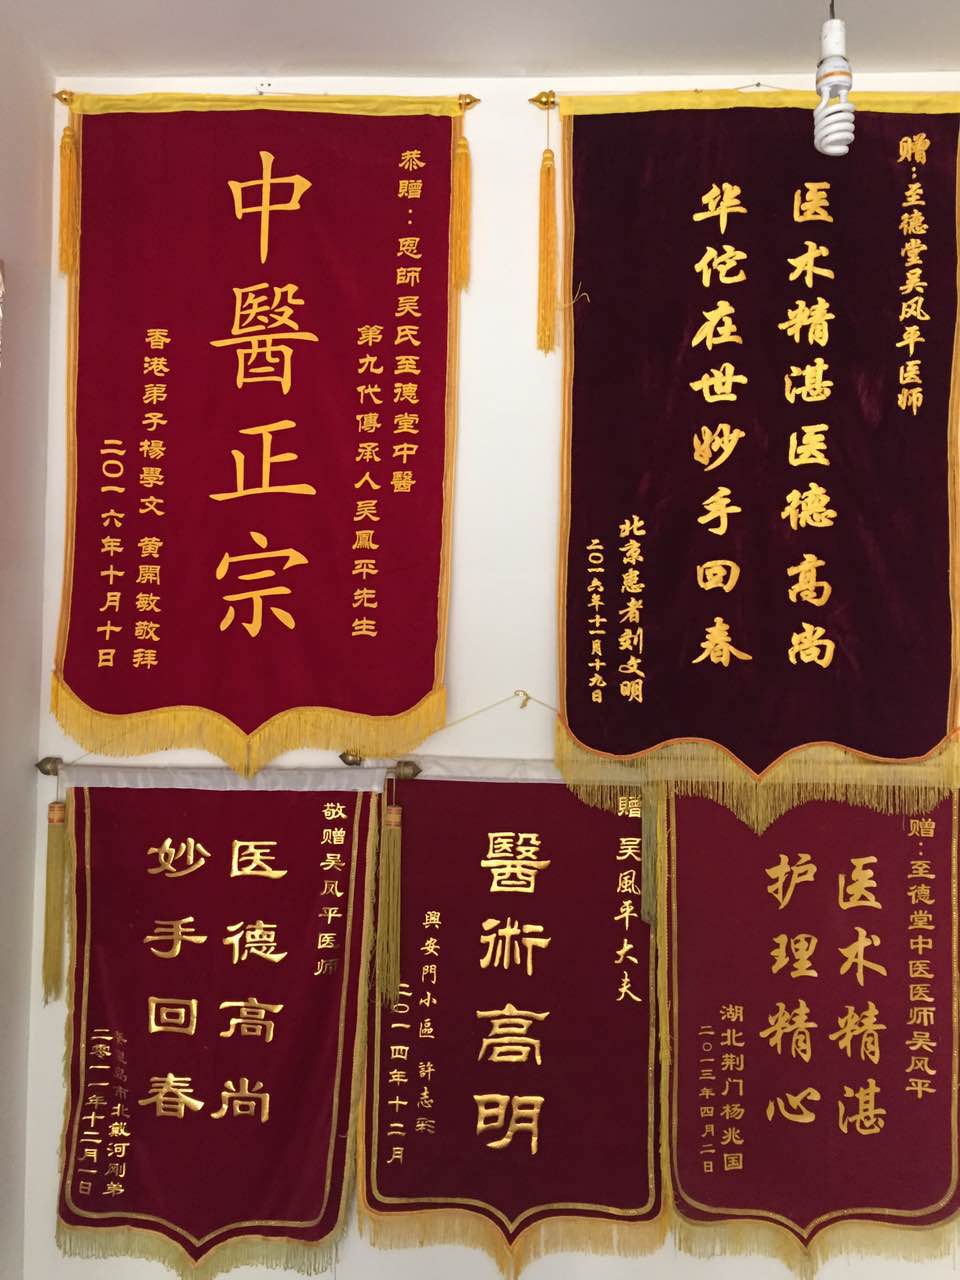 恭贈：恩師吴氏至德堂中醫
第九代傳承人吴鳳平先生
中醫正宗
香港弟子楊學文 黄開敏敬拜
二〇一六年十月十日
赠：至德堂吴风平医师
医术精湛医德高尚
华佗在世妙手回春
北京患者刘文明
二〇一六年十一月十九日
敬赠吴凤平医师
医德高尚
妙手回春
秦皇岛市北戴河刚弟
二零一一年十二月一日
贈 吴風平大夫
醫術高明
興安門小區 許志彩
二〇一四年十二月
赠：至德堂中医医师吴风平
医术精湛
护理精心
湖北荆门杨兆国
二〇一三年四月二日